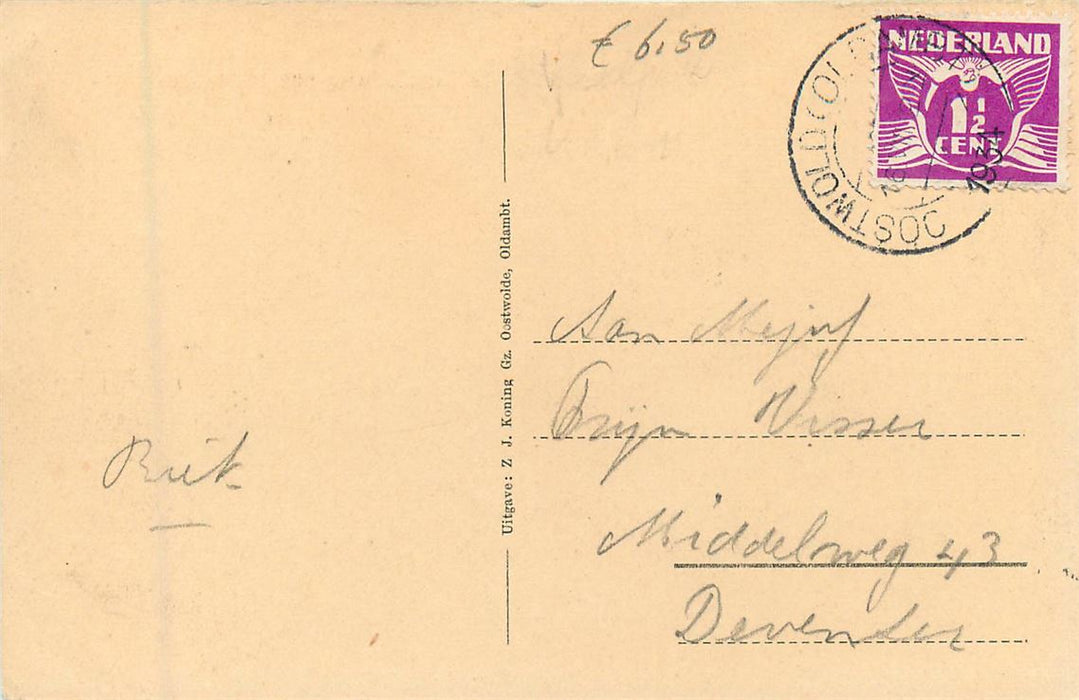 € 6.50
NEDERLAND
1½
CENT
OOSTWOLD (OLDAMBT)
1934
Uitgave: Z J. Koning Gz. Oostwolde, Oldambt.
Aan Mejuf
Trijn Visser
Middelweg 43
Deventer
Riek